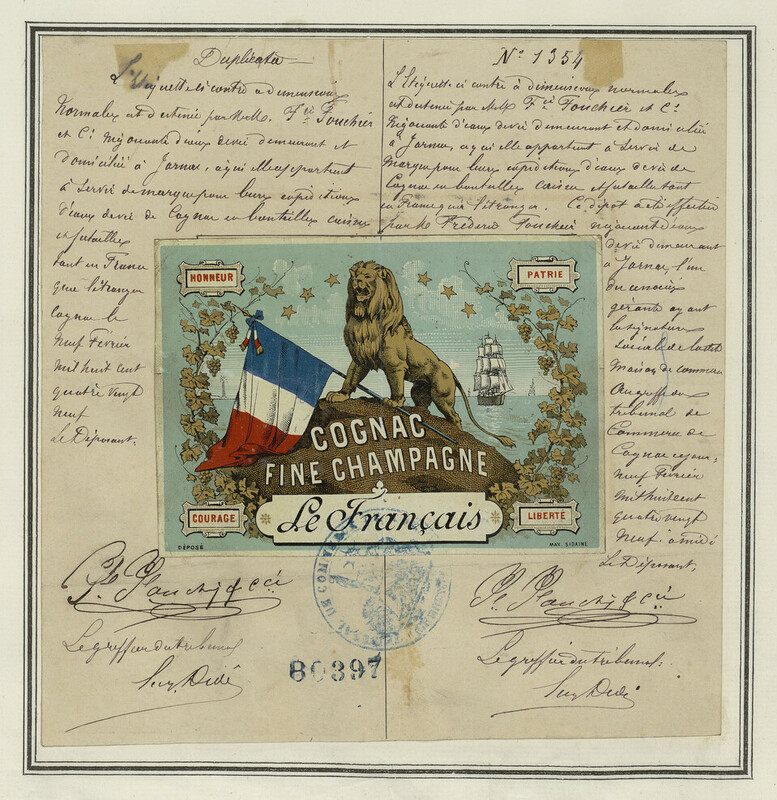 Duplicata
L'étiquette ci contre a dimensions
Normales est détenue par M.M. Fic Fouchier
et Cie Négociants d'eaux de vie demeurant et
domiciliés à Jarnac, a qui elle appartient
à Servir de marque pour leurs expéditions
d'eaux de vie de Cognac en bouteilles caisses
et futailles
tant en France
que l'étranger
Cognac le
Neuf Février
Mil huit cent
quatre vingt
neuf
Le Déposant,
No 1354
L'Etiquette ci contre à dimensions normales
est détenue par M.M. Fic Fouchier et Cie
Négociants d'eaux de vie demeurant et domiciliés
à Jarnac, a qui elle appartient à Servir de
Marque pour leurs expéditions d'eaux de vie de
Cognac en bouteilles caisses et futailles tant
en France que l'étranger. Ce dépôt a été effectué
par M. Fréderic Fouchier négociant d'eaux
de vie demeurant
à Jarnac, l'un
des associés
gérants ayant
la signature
Sociale de la dite
Maison de commerce
Au greffe du
tribunal de
Commerce de
Cognac ce jour,
neuf Février
mil huit cent
quatre vingt
neuf. à midi
Le Déposant,
HONNEUR
PATRIE
COGNAC
FINE CHAMPAGNE
Le Français
COURAGE
LIBERTÉ
DÉPOSÉ
MAX. SIDAINE
Le greffier du tribunal
80397
Le greffier du tribunal: